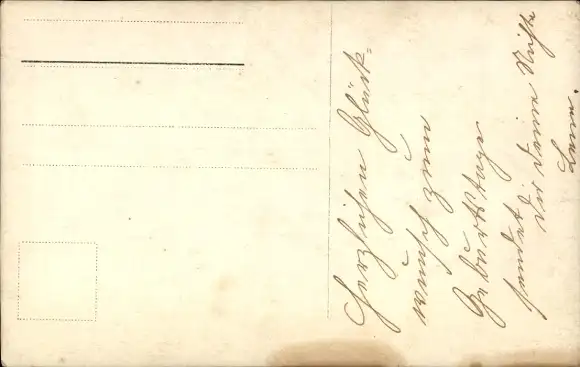 Herzlichen Glück-
wunsch zum
Geburtstage
sendet dir
Deine Nichte
Lene.